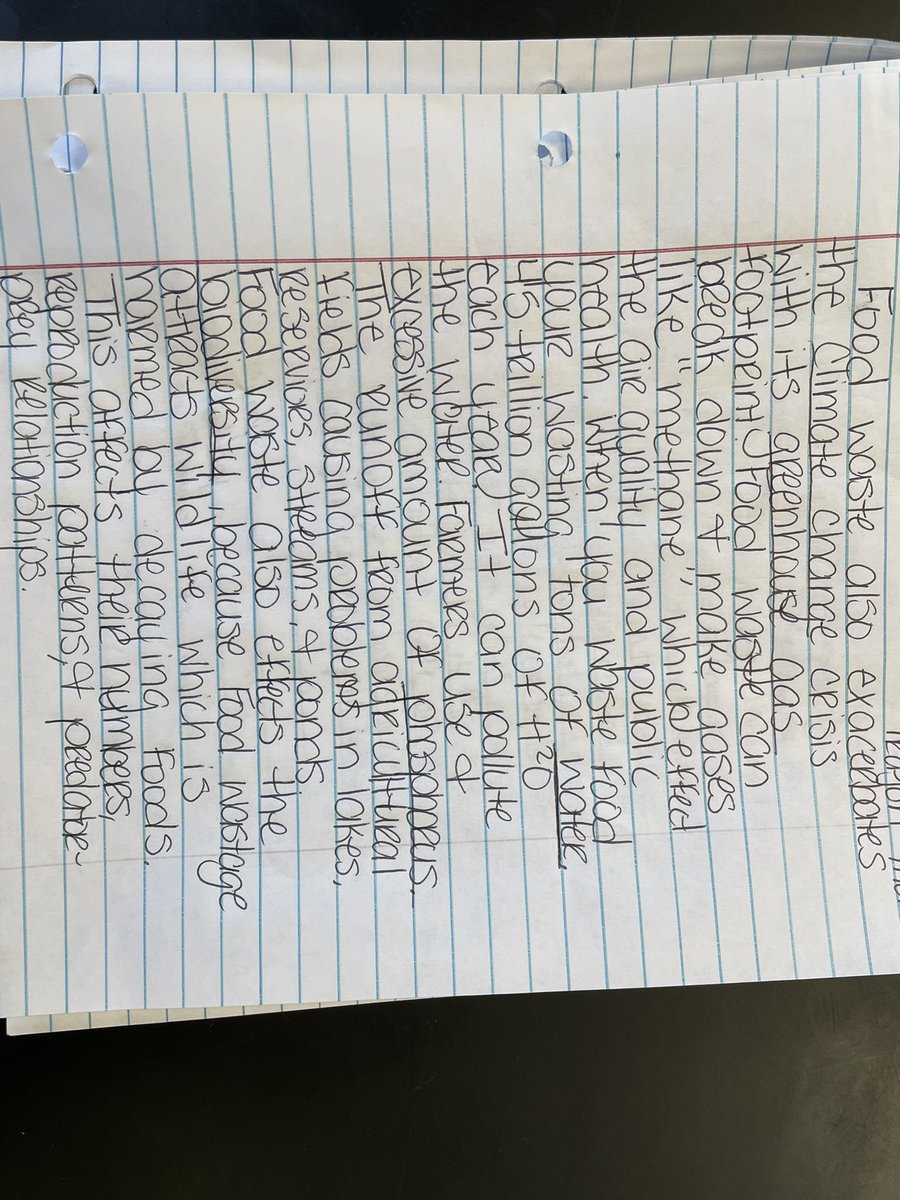 Food waste also exacerbates
the climate change crisis
with its greenhouse gas
footprint. Food waste can
break down & make gases
like "methane" which effect
the air quality and public
health. When you waste food
your wasting tons of water.
45 trillion gallons of H²O
each year. It can pollute
the water. Farmers use a
excessive amount of phosphorus.
The runoff from agricultural
fields causing problems in lakes,
reservires, streams, & ponds.
Food waste also effects the
biodiversity, because food wastage
attracts wildlife which is
harmed by decaying foods.
This affects their numbers,
reproduction patterns, & predator-
prey relationships.